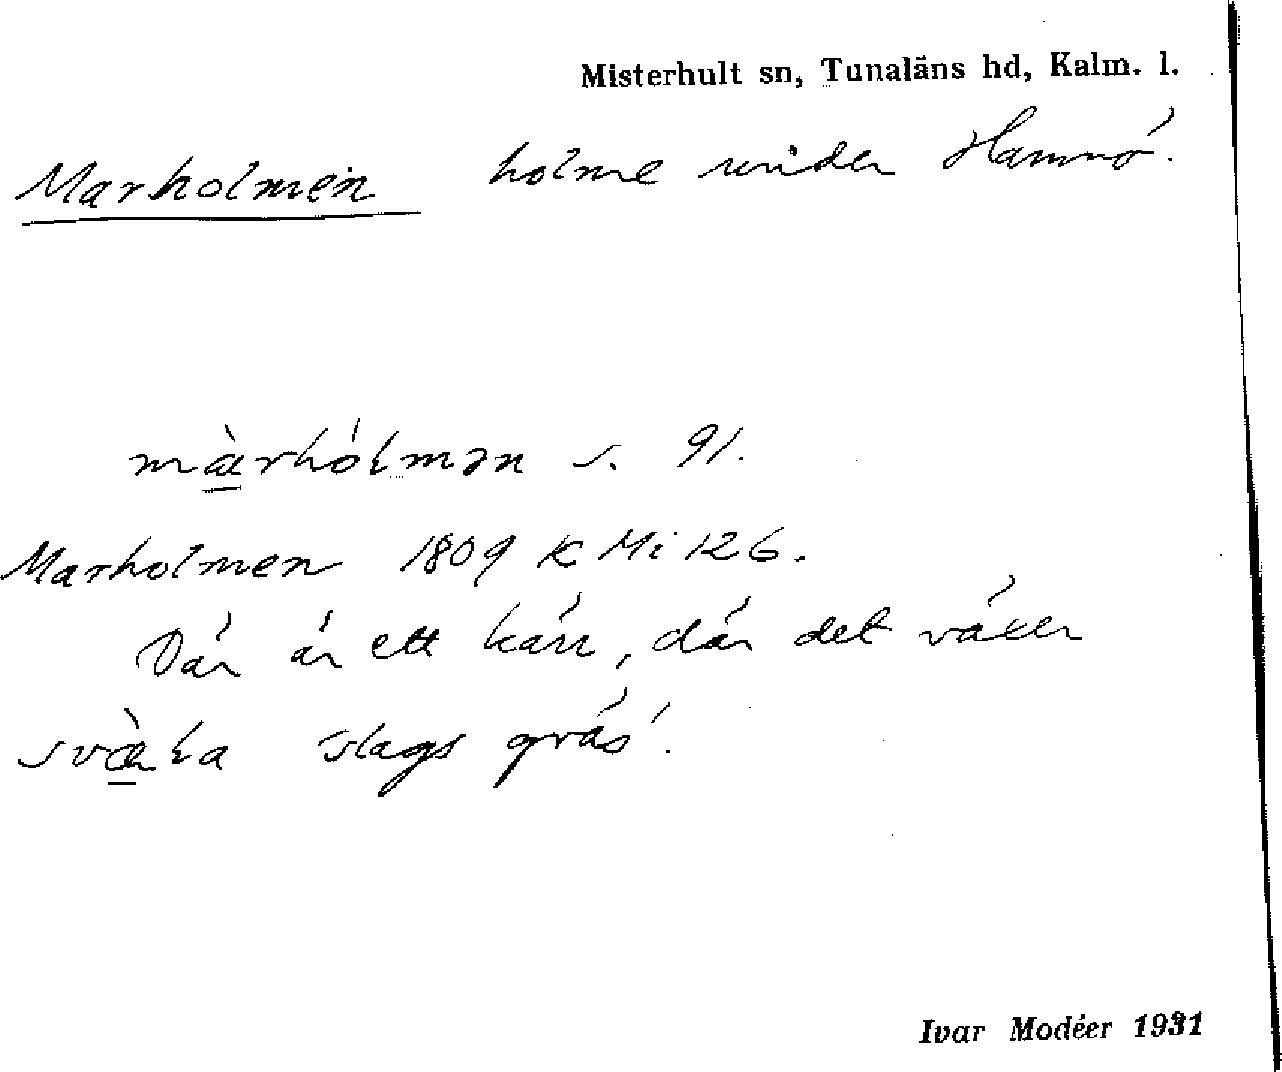 Misterhult sn, Tunaläns hd, Kalm. l.
Marholmen holme under Hamnö.
mæ̀rhólmən s. 91.
Marholmen 1809 K Mi 126.
Där är ett kärr, där det växer
slags gräs.
Ivar Modéer 1931